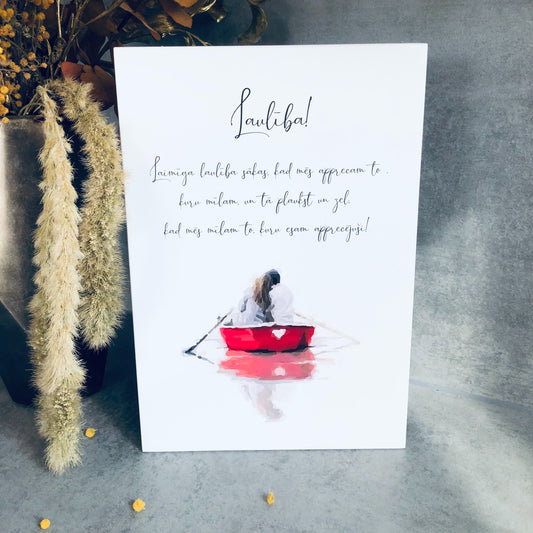 Laulība!
Laimīga laulība sākas, kad mēs apprecam to,
kuru mīlam, un tā plaukst un zel,
kad mēs mīlam to, kuru esam apprecējuši!